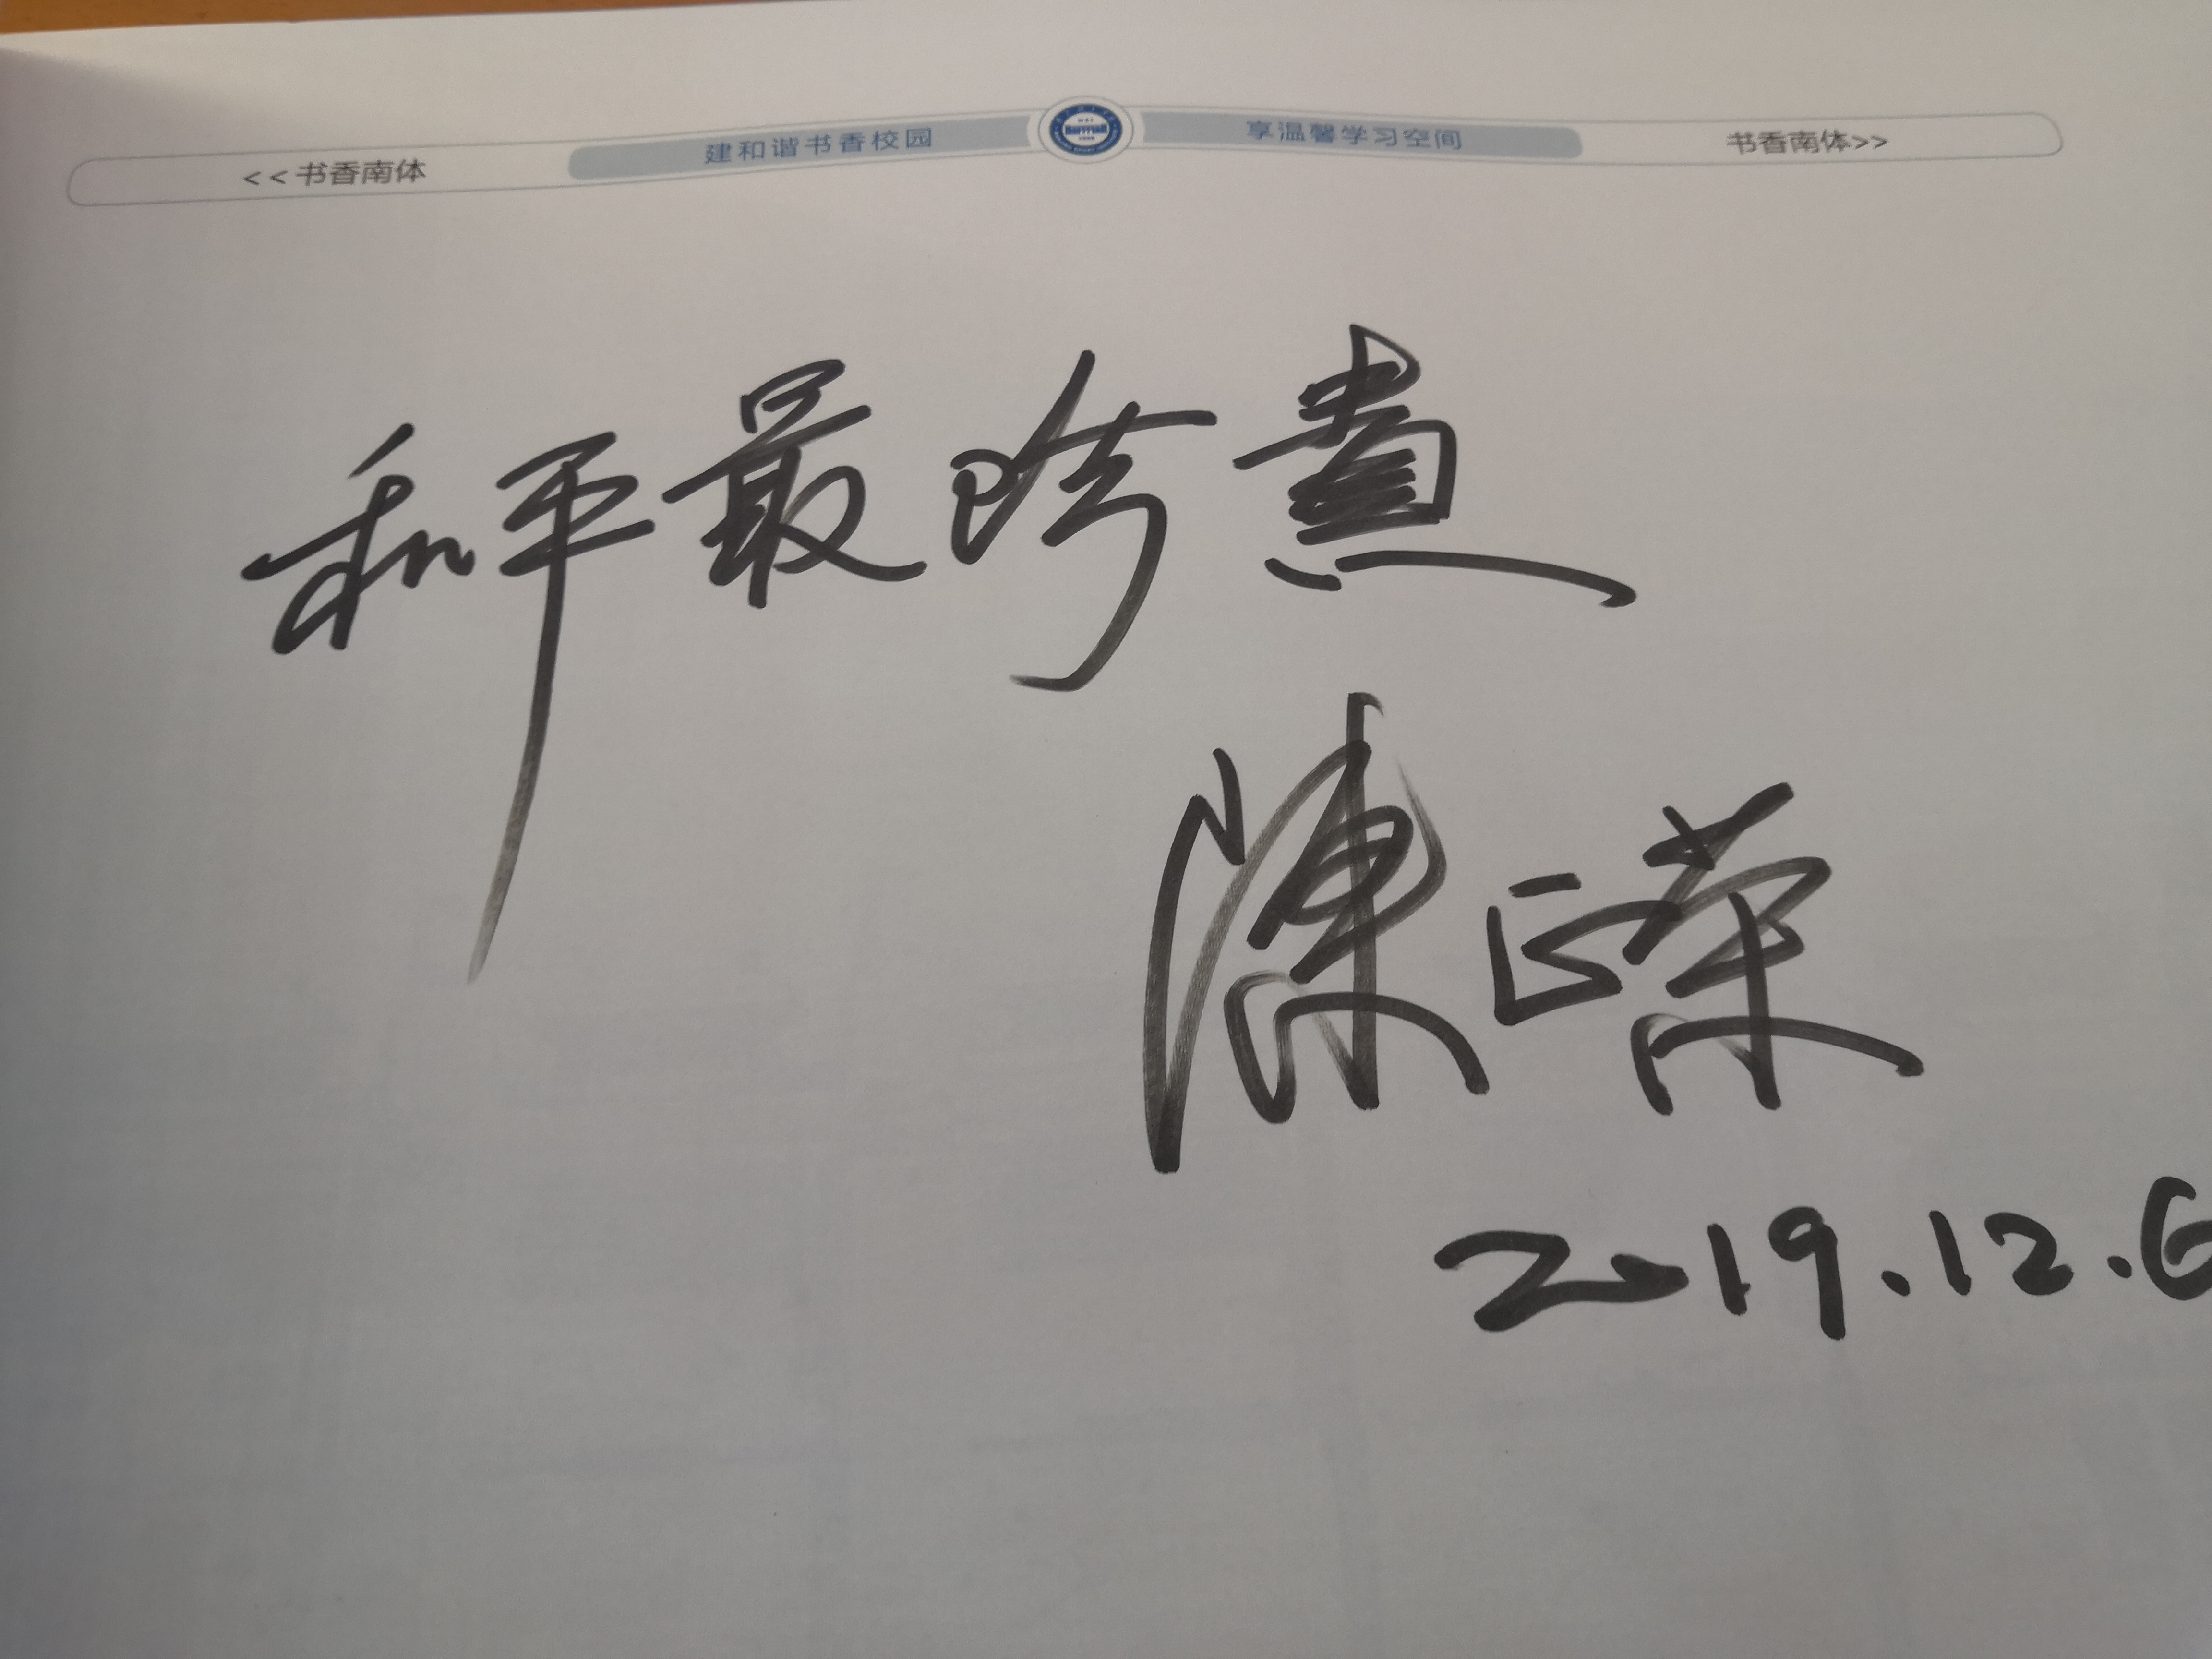 <<书香南体 建和谐书香校园 享温馨学习空间 书香南体>>
和平最珍贵
陳正荣
2019.12.6